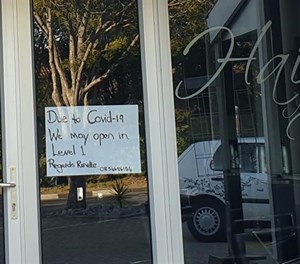 Due to Covid-19
We may open in
Level 1
Regards Renette
Hay